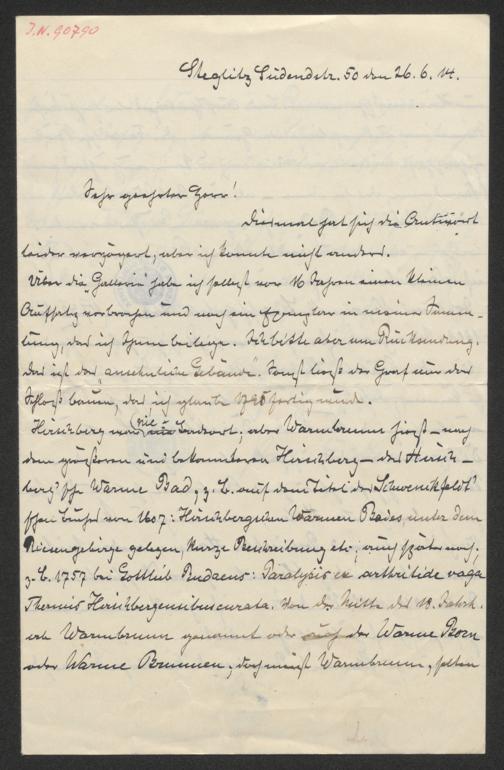 J.N. 90790
Steglitz Südendstr. 50 den 26. 6. 14.
Sehr geehrter Herr!
Diesmal hat sich die Antwort
leider verzögert, aber ich konnte nicht anders.
Über die „Gallerie" habe ich selbst vor 16 Jahren einen kleinen
Aufsatz verbrochen und noch ein Exemplar in meiner Samm-
lung, das ich Ihnen beilege. Ich bitte aber um Rücksendung.
Das ist das „ansehnliche Gebäude". Sonst ließ der Graf nur das
Schloß bauen, das ich glaube 1795 fertig wurde.
Hirschberg war nie Badeort, aber Warmbrunn hieß – nach
dem größeren und bekannteren Hirschberg – das Hirsch-
berg'sche Warme Bad, z. B. auf dem Titel des Schwenckfeldt'
schen Buches von 1607: Hirschbergischen Warmen Bades, unter dem
Riesengebirge gelegen, kurze Beschreibung etc; auch später noch,
z. B. 1757 bei Gottlieb Rudaeus: Paralysis ex arthritide vaga
Thermis Hirschbergensibus curata. Von der Mitte des 18. Jahrh.
als Warmbrunn genannt oder auch der Warme Born
oder Warme Brunnen, doch meist Warmbrunn, selten